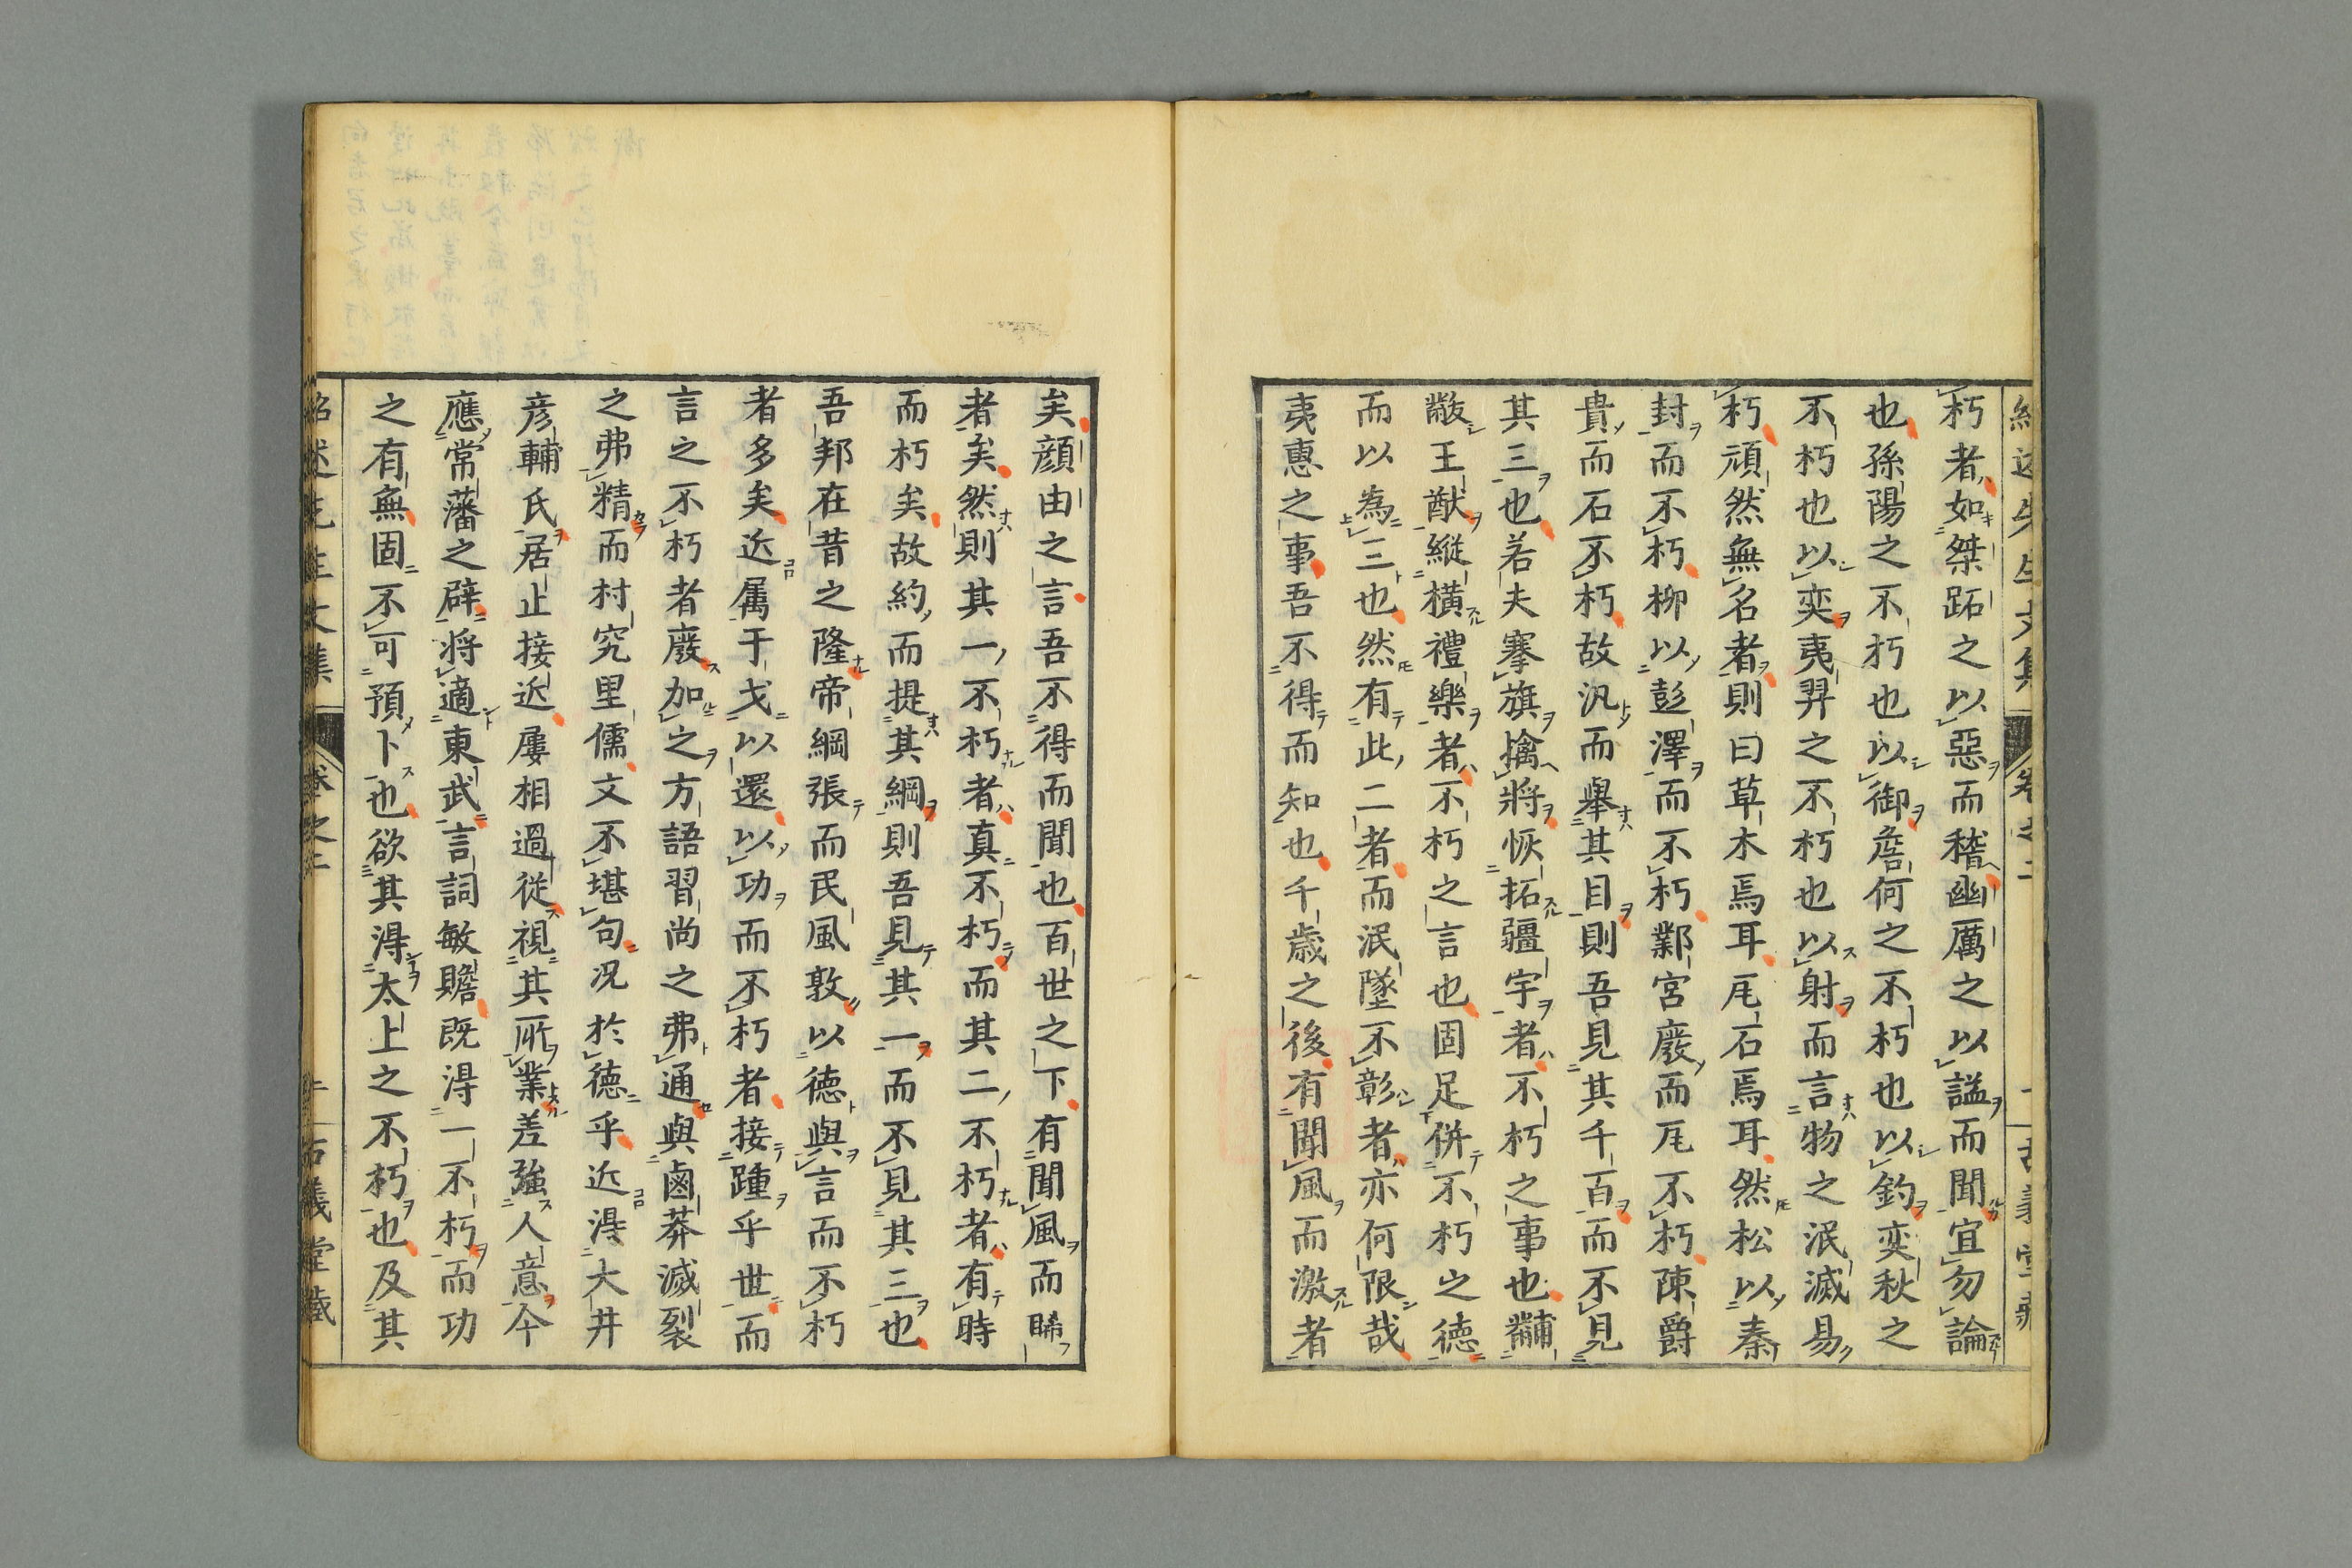 朽者如桀跖之以惡而稽幽厲之以謚而聞宜勿論
也孫陽之不朽也以御詹何之不朽也以釣奕秋之
不朽也以奕夷羿之不朽也以射而言物之泯滅易
朽頑然無名者則曰草木焉耳瓦石焉耳然松以秦
封而不朽柳以彭澤而不朽鄴宮廢而瓦不朽陳爵
貴而石不朽故汎而舉其目則吾見其千百而不見
其三也若夫搴旗擒將恢拓疆宇者不朽之事也黼
黻王猷縱橫禮樂者不朽之言也固足併不朽之德
而以為三也然有此二者而泯墜不彰者亦何限哉
夷惠之事吾不得而知也千歲之後有聞風而激者
矣顏由之言吾不得而聞也百世之下有聞風而睎
者矣然則其一不朽者真不朽而其二不朽者有時
而朽矣故約而提其綱則吾見其一而不見其三也
吾邦在昔之隆帝綱張而民風敦以德與言而不朽
者多矣近属于戈以還以功而不朽者接踵乎世而
言之不朽者廢加之方語習尚之弗通與鹵莽滅裂
之弗精而村究里儒文不堪句况於德乎近得大井
彦輔氏居止接近屢相過從視其所業差強人意今
應常藩之辟將適東武言詞敏贍既得一不朽而功
之有無固不可預卜也欲其得太上之不朽也及其
紹述先生文集 卷之二 古義堂藏